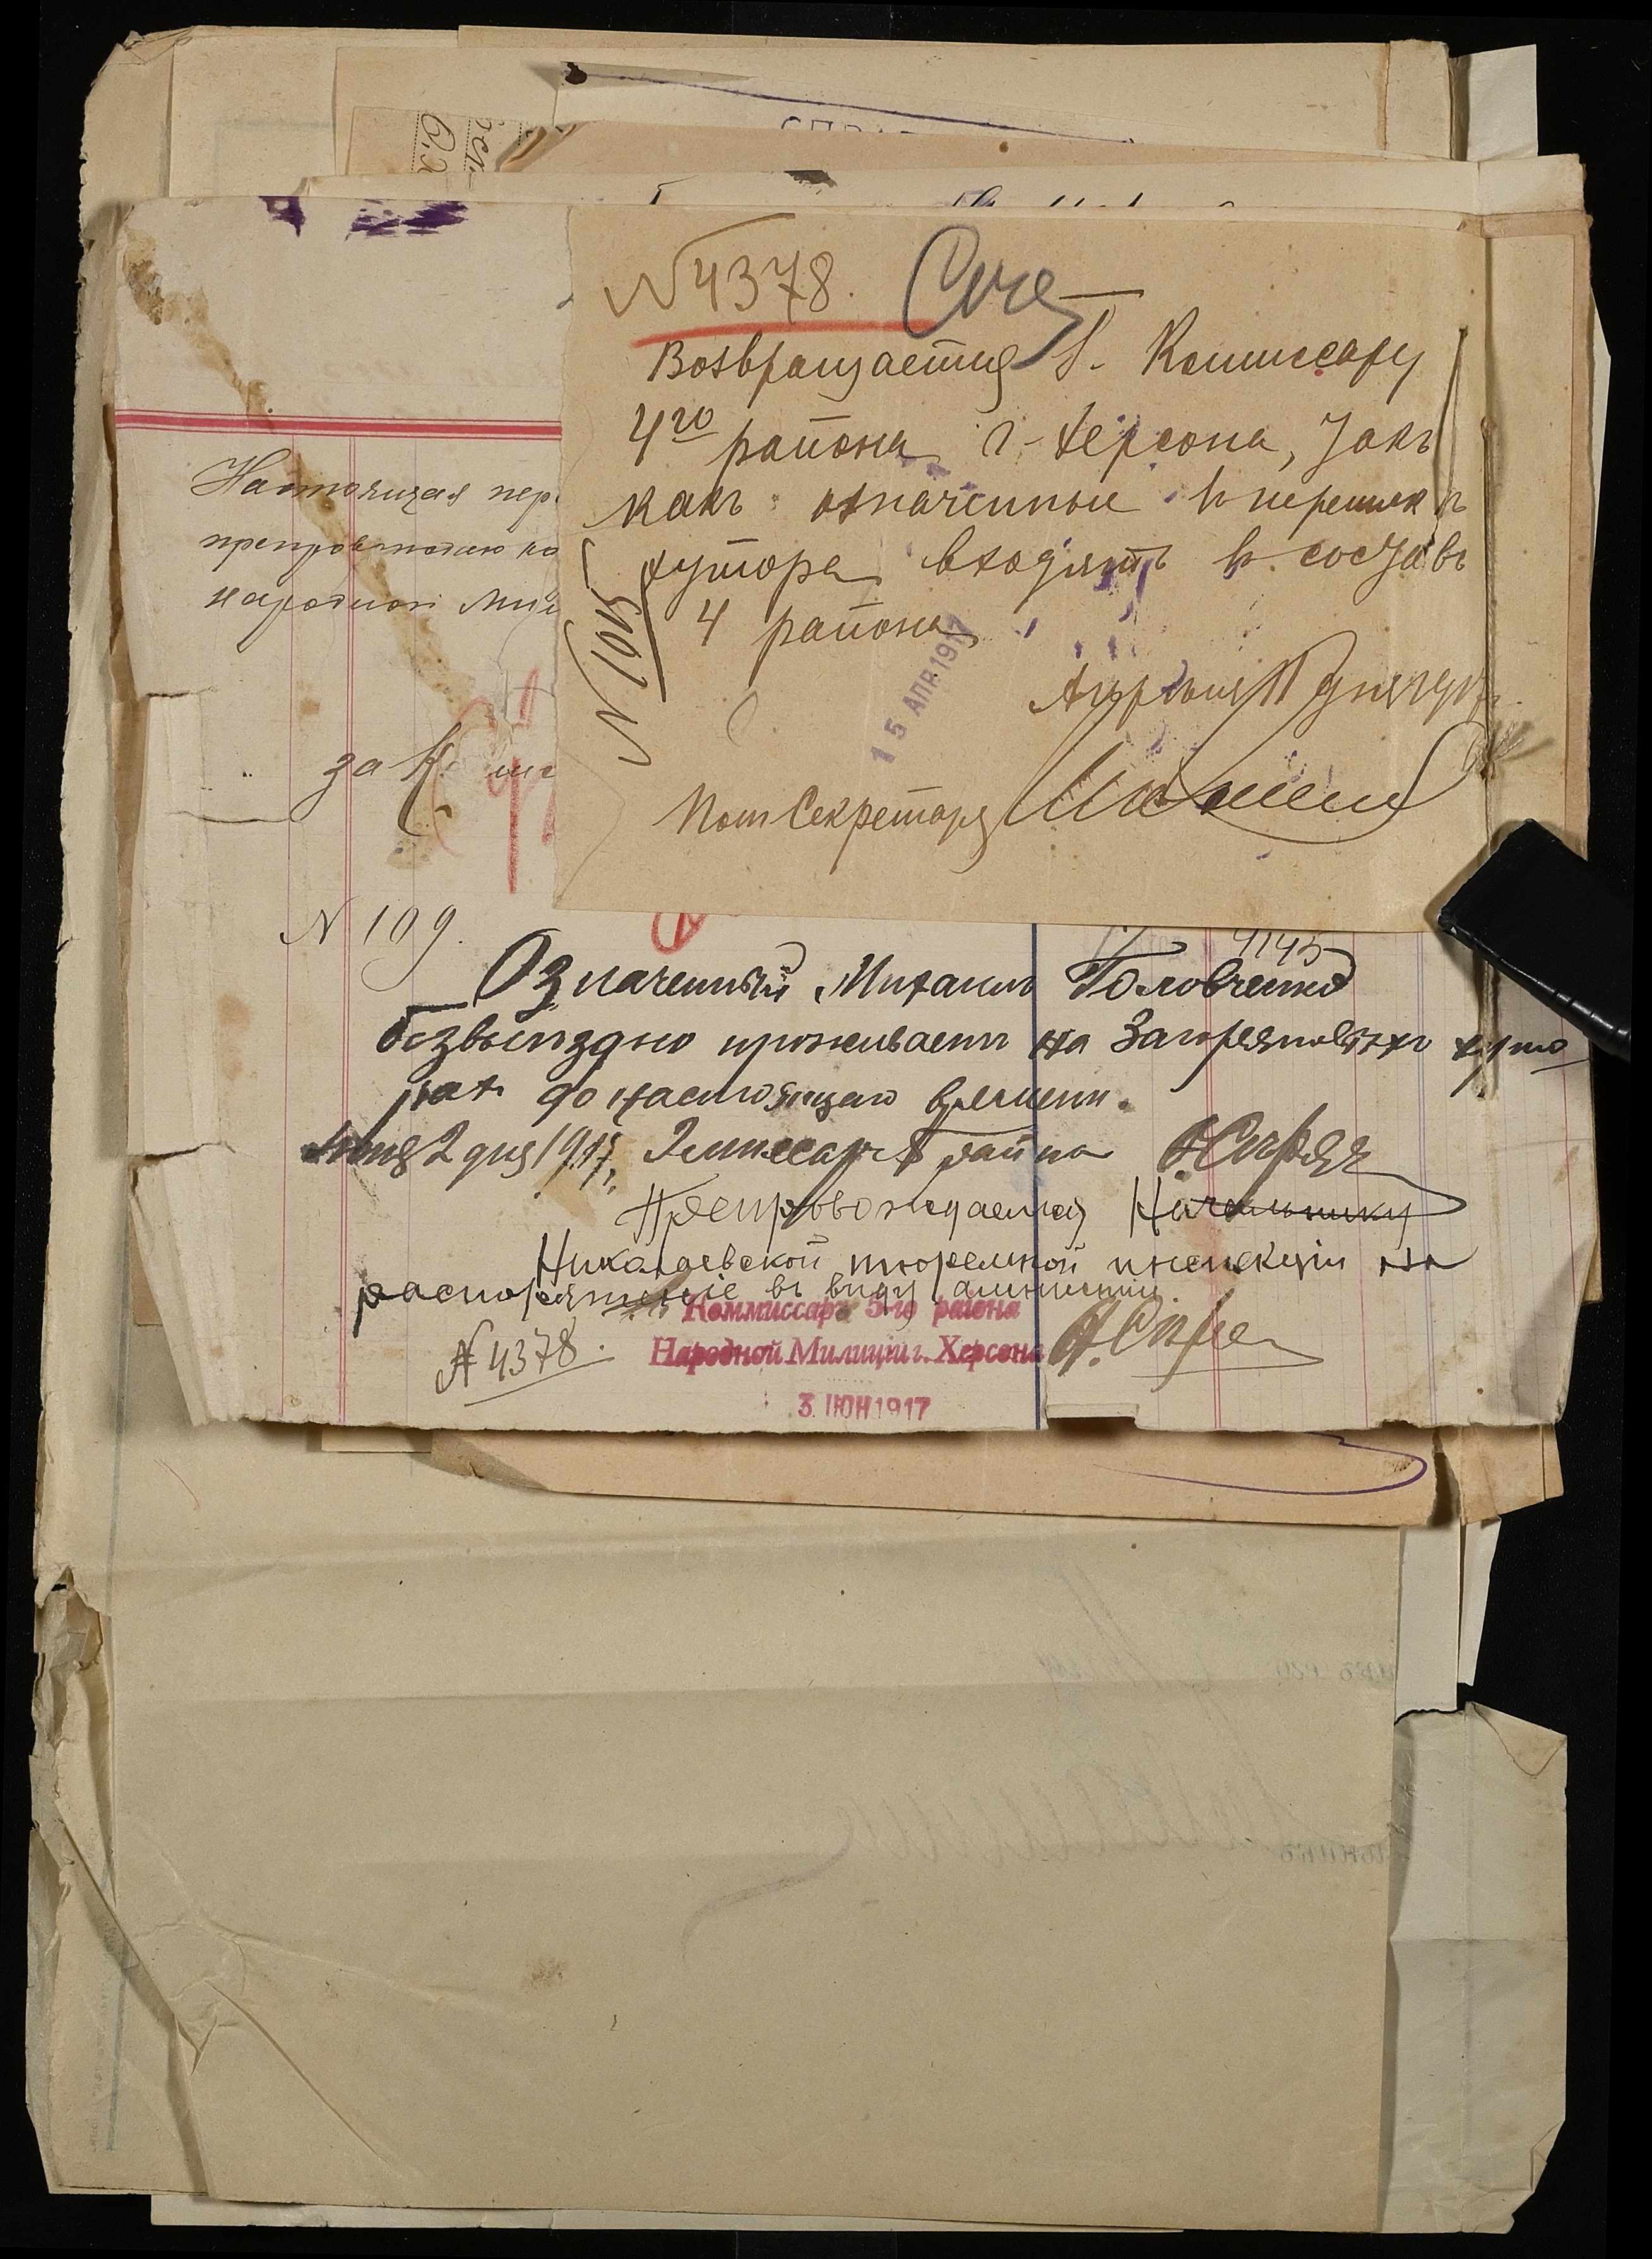 N 4378.
Возвращается Г. Комиссару
4го района г. Херсона, так
какъ означенные в перепискѣ
хутора входятъ в составъ
4 района
N 1015
15 АПР 1917
Пом Секретаря
Настоящая пер
препровождаю ко
народной Мил
за
N 109.
4145
Означенный Михаилъ Головченко
безвыѣздно проживаетъ на хуто
рахъ до настоящаго времени.
2 дня 1917 района
Препровождается Начальнику
Николаевской тюремной инспекціи на
распоряженіе въ виду амнистіи.
Коммиссаръ 5-го района
N 4378.
Народной Милиціи г. Херсона
3 ІЮН 1917